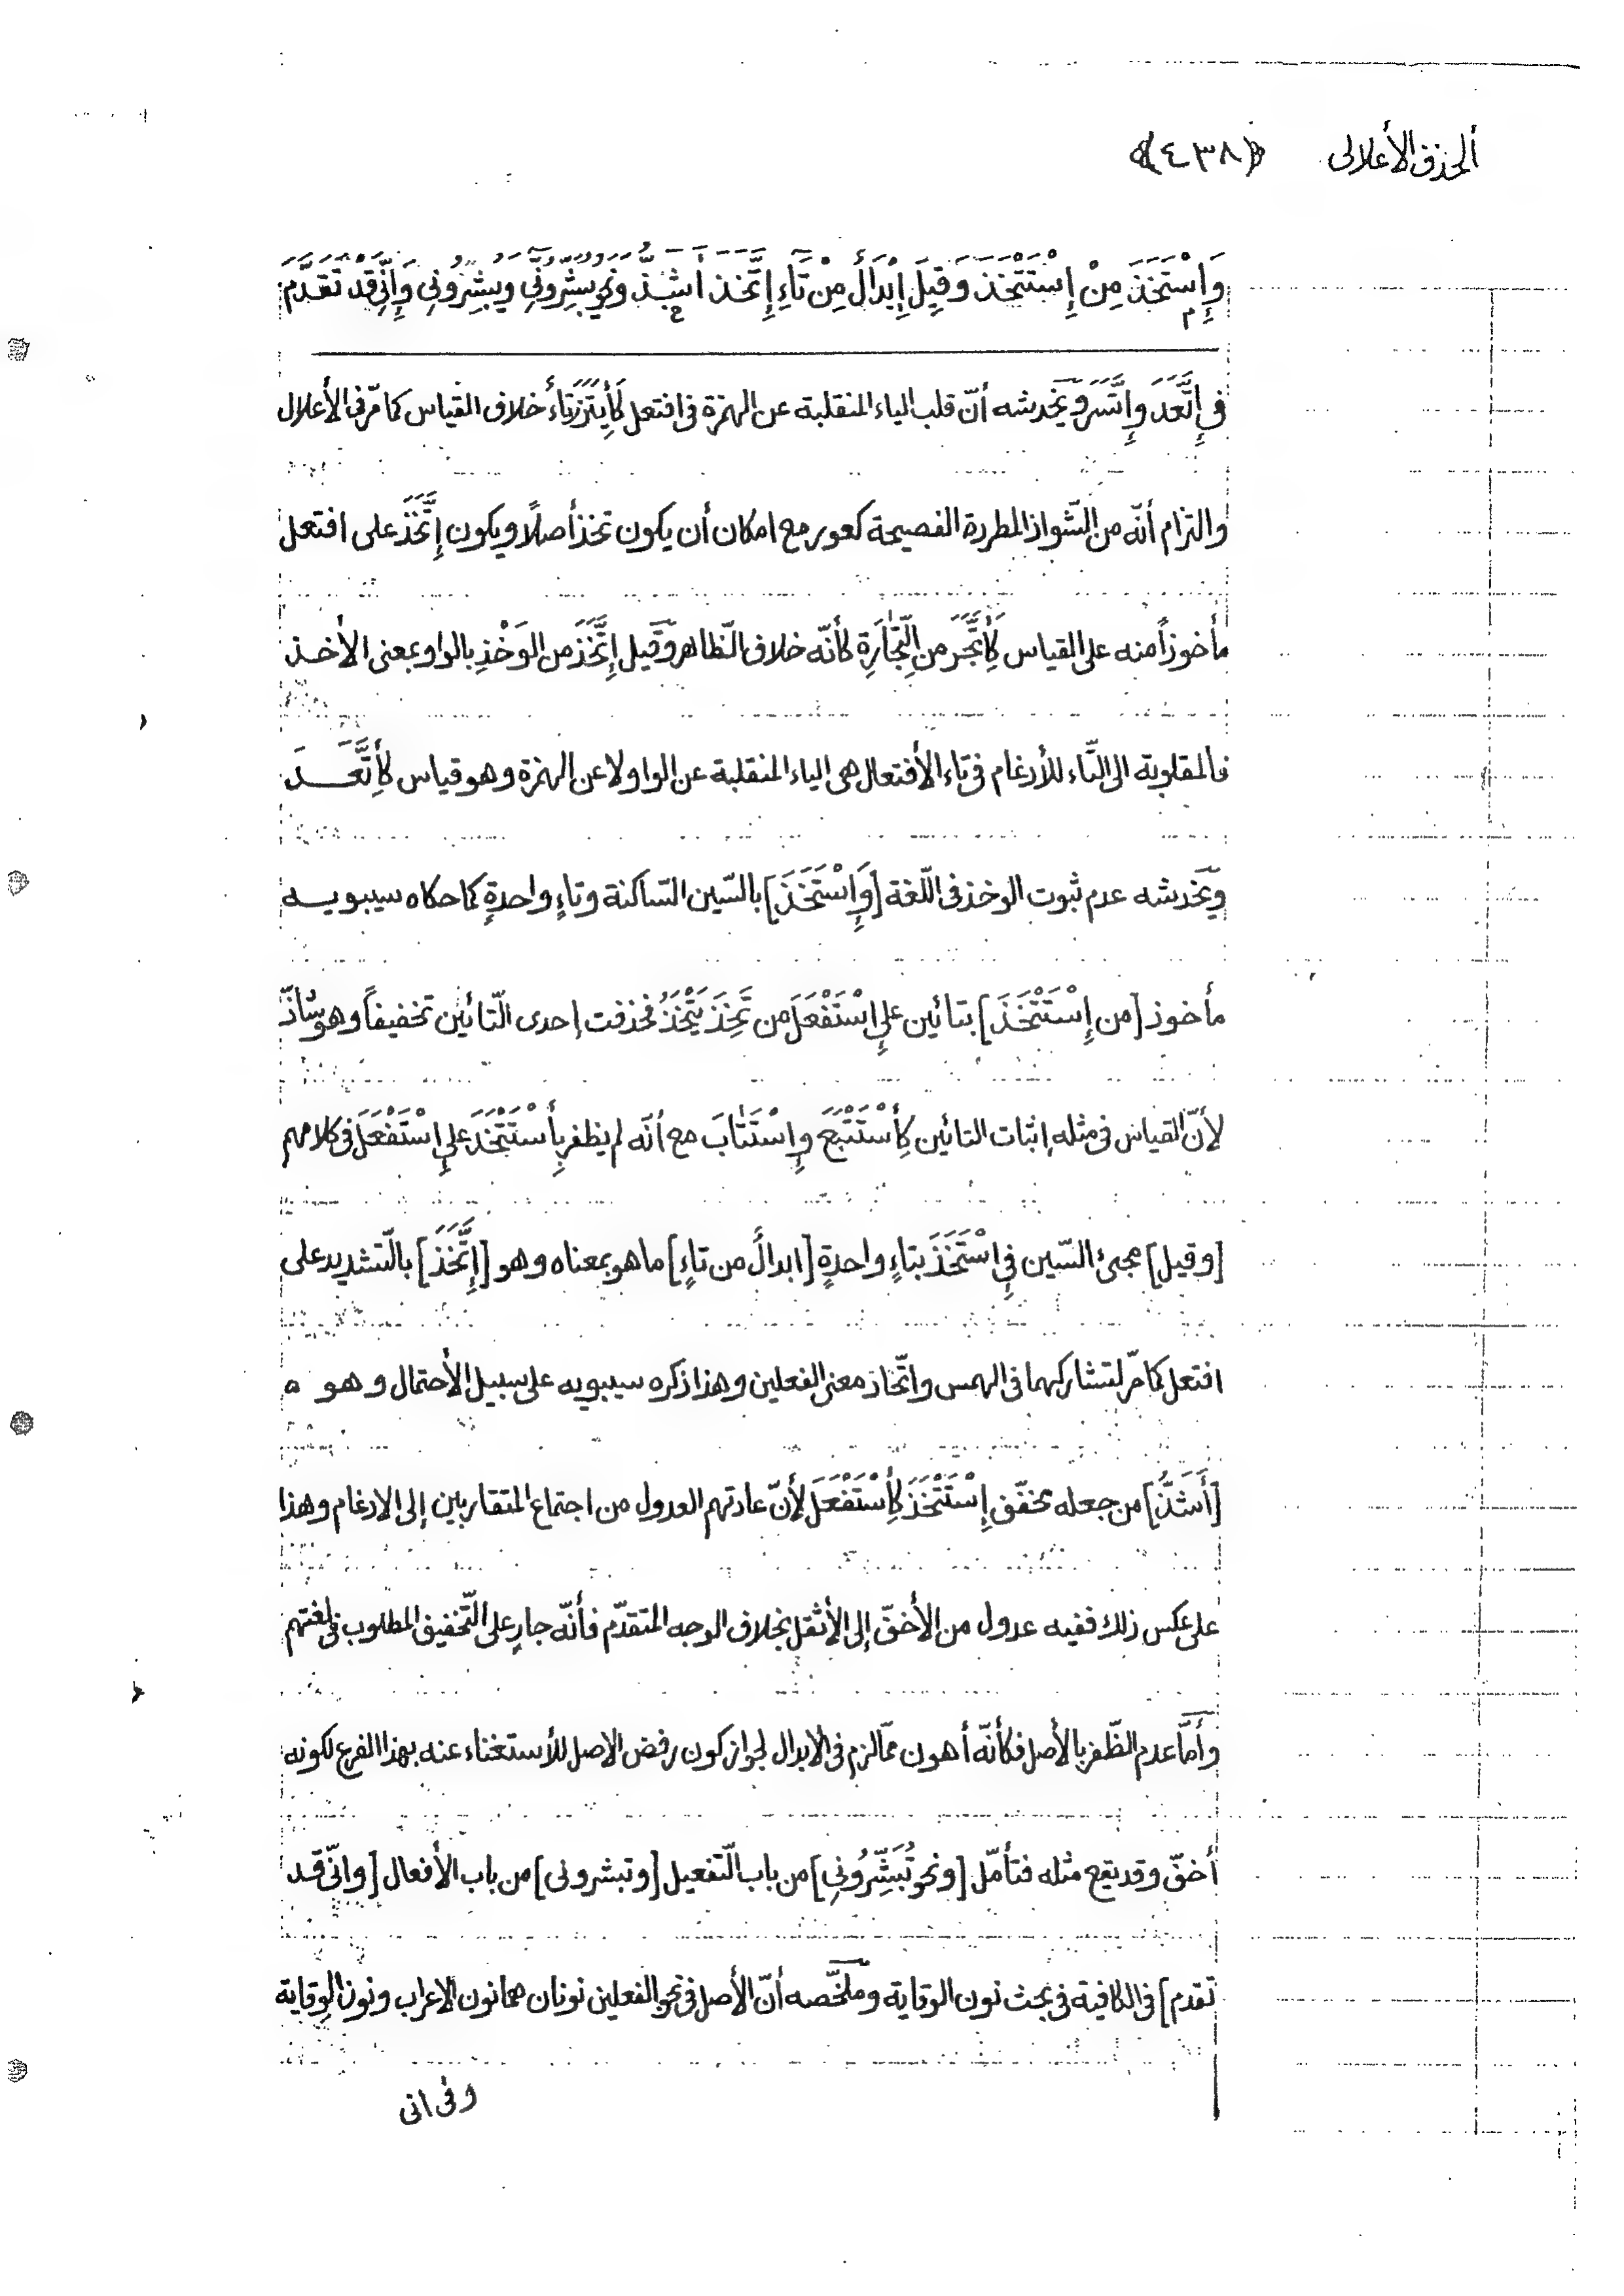 ألحذف الأعلالى ﴿٤٣٨﴾
وَإِسْتَخَذَ مِنْ إِسْتَتْخَذَ وَقِيلَ إِبْدَالٌ مِنْ تَاءِ إِتَّخَذَ أَشَذُّ وَنَحْوُ تُبَشِّرُونِّي وَتُبْشِرُونِي وَإِنِّي قَدْ تَقَدَّمَ
في إِتَّعَدَ وإِتَّسَرَ ويخدشه أنّ قلب الياء المنقلبة عن الهمزة في افتعل كَأِيتَزَرَ تاءً خلاف القياس كما مرّ في الأعلال
والتزام أنّه من الشّواذ المطردة الفصيحة كعور مع امكان أن يكون تخذ أصلاً ويكون إِتَّخَذَ على افتعل
مأخوذاً منه على القياس كَأِتَّجَرَ من التِّجَارَةِ كأنّه خلاف الظّاهر وقيل إِتَّخَذَ من الوَخْذِ بالواو بمعنى الأخذ
فالمقلوبة الى التّاء للأدغام في تاء الأفتعال هى الياء المنقلبة عن الواو لا عن الهمزة وهو قياس كَأِتَّعَدَ
ويخدشه عدم ثبوت الوخذ في اللّغة [وَإِسْتَخَذَ] بالسّين السّاكنة وتاءٍ واحدةٍ كما حكاه سيبويه
مأخوذ [من إِسْتَتْخَذَ] بتائين على إِسْتَفْعَلَ من تَخِذَ يَتْخَذُ فحذفت إحدى التّائين تخفيفاً وهو شاذّ
لأنّ القياس في مثله إثبات التائين كَأِسْتَتْبَعَ وإِسْتَتَابَ مع أنّه لم يظفر بِأِسْتَتْخَذَ على إِسْتَفْعَلَ في كلامهم
[وقيل] مجىء السّين في إِسْتَخَذَ بتاءٍ واحدةٍ [ابدالٌ من تاءِ] ما هو بمعناه وهو [إِتَّخَذَ] بالتّشديد على
افتعل كما مرّ لتشاركهما في الهمس واتّخاذ معنى الفعلين وهذا ذكره سيبويه على سبيل الأحتمال وهو ه
[أَشَذُّ] من جعله مخفّف إِسْتَتْخَذَ كَأِسْتَفْعَلَ لأنّ عادتهم العدول من اجتماع المتقاربين إلى الادغام وهذا
على عكس ذلك ففيه عدول من الأخفّ إلى الأثقل بخلاف الوجه المتقدّم فأنّه جارٍ على التّخفيف المطلوب في لغتهم
وأمّا عدم الظّفر بالأصل فكأنّه أهون ممّا لزم في الابدال لجواز كون رفض الاصل للأستغناء عنه بهذا الفرع لكونه
أخفّ وقد يقع مثله فتأمّل [ونحو تُبَشِّرُونِي] من باب التّفعيل [وتبشرونى] من باب الأفعال [وانّى قد
تقدم] في الكافية في بحث نون الوقاية وملخّصه أنّ الأصل في نحو الفعلين نونان هما نون الاعراب ونون الوقاية
وفى انى